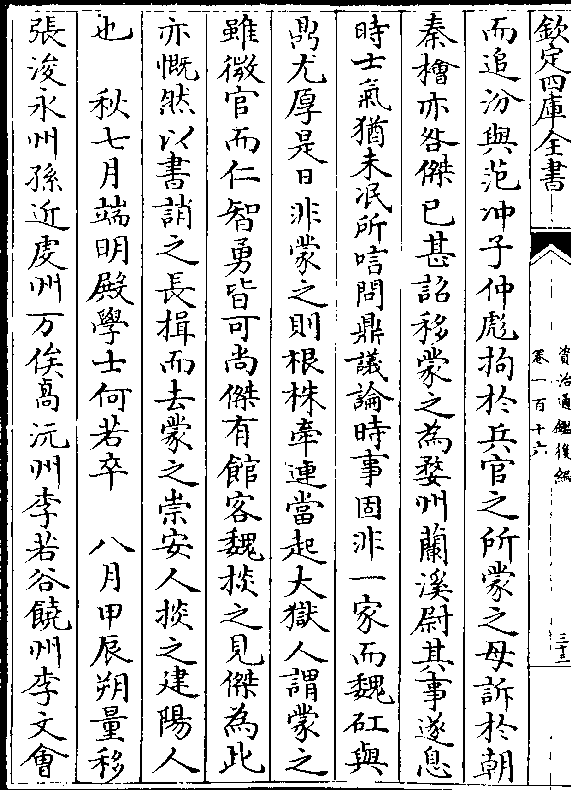 欽定四庫全書
資治通鑑後編
卷一百十六
三十三
而追汾與范冲子仲彪拘於兵官之所蒙之母訴於朝
秦檜亦咎傑已甚詔移蒙之為婺州蘭溪尉其事遂息
時士氣猶未泯所唁問鼎議論時事固非一家而魏矼與
鼎尤厚是日非蒙之則根株牽連當起大獄人謂蒙之
雖微官而仁智勇皆可尚傑有館客魏掞之見傑為此
亦慨然以書誚之長揖而去蒙之崇安人掞之建陽人
也　秋七月端明殿學士何若卒　八月甲辰朔量移
張浚永州孫近虔州万俟卨沅州李若谷饒州李文會